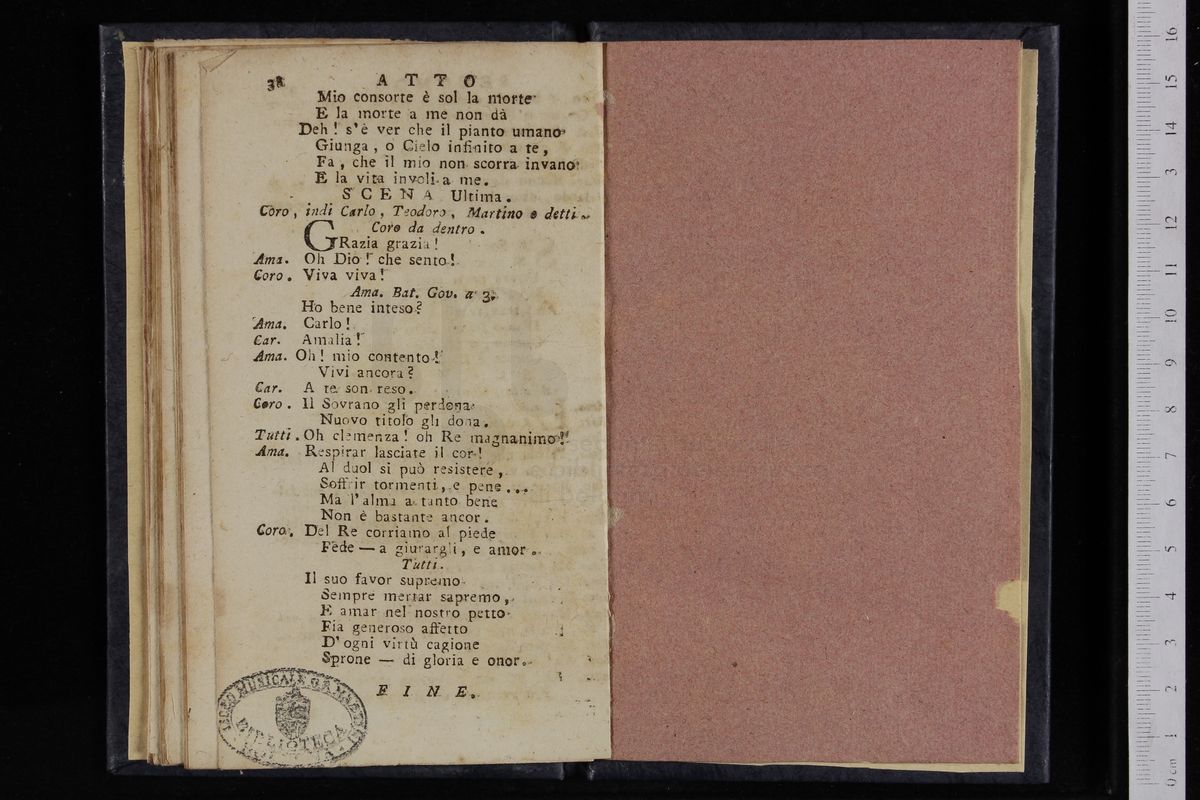 38 ATTO
Mio consorte è sol la morte
E la morte a me non dà
Deh! s'è ver che il pianto umano
Giunga, o Cielo infinito a te,
Fa, che il mio non scorra invano
E la vita involi a me.
SCENA Ultima.
Coro, indi Carlo, Teodoro, Martino e detti.
Coro da dentro.
GRazia grazia!
Ama. Oh Dio! che sento!
Coro. Viva viva!
Ama. Bat. Gov. a 3.
Ho bene inteso?
Ama. Carlo!
Car. Amalia!
Ama. Oh! mio contento!
Vivi ancora?
Car. A te son reso.
Coro. Il Sovrano gli perdona
Nuovo titolo gli dona.
Tutti. Oh clemenza! oh Re magnanimo!
Ama. Respirar lasciate il cor!
Al duol si può resistere,
Soffrir tormenti, e pene...
Ma l'alma a tanto bene
Non è bastante ancor.
Coro. Del Re corriamo al piede
Fede — a giurargli, e amor.
Tutti.
Il suo favor supremo
Sempre mertar sapremo,
E amar nel nostro petto
Fia generoso affetto
D'ogni virtù cagione
Sprone — di gloria e onor.
FINE.
MUSICALE
BIBLIOTECA
0 cm 1 2 3 4 5 6 7 8 9 10 11 12 13 14 15 16